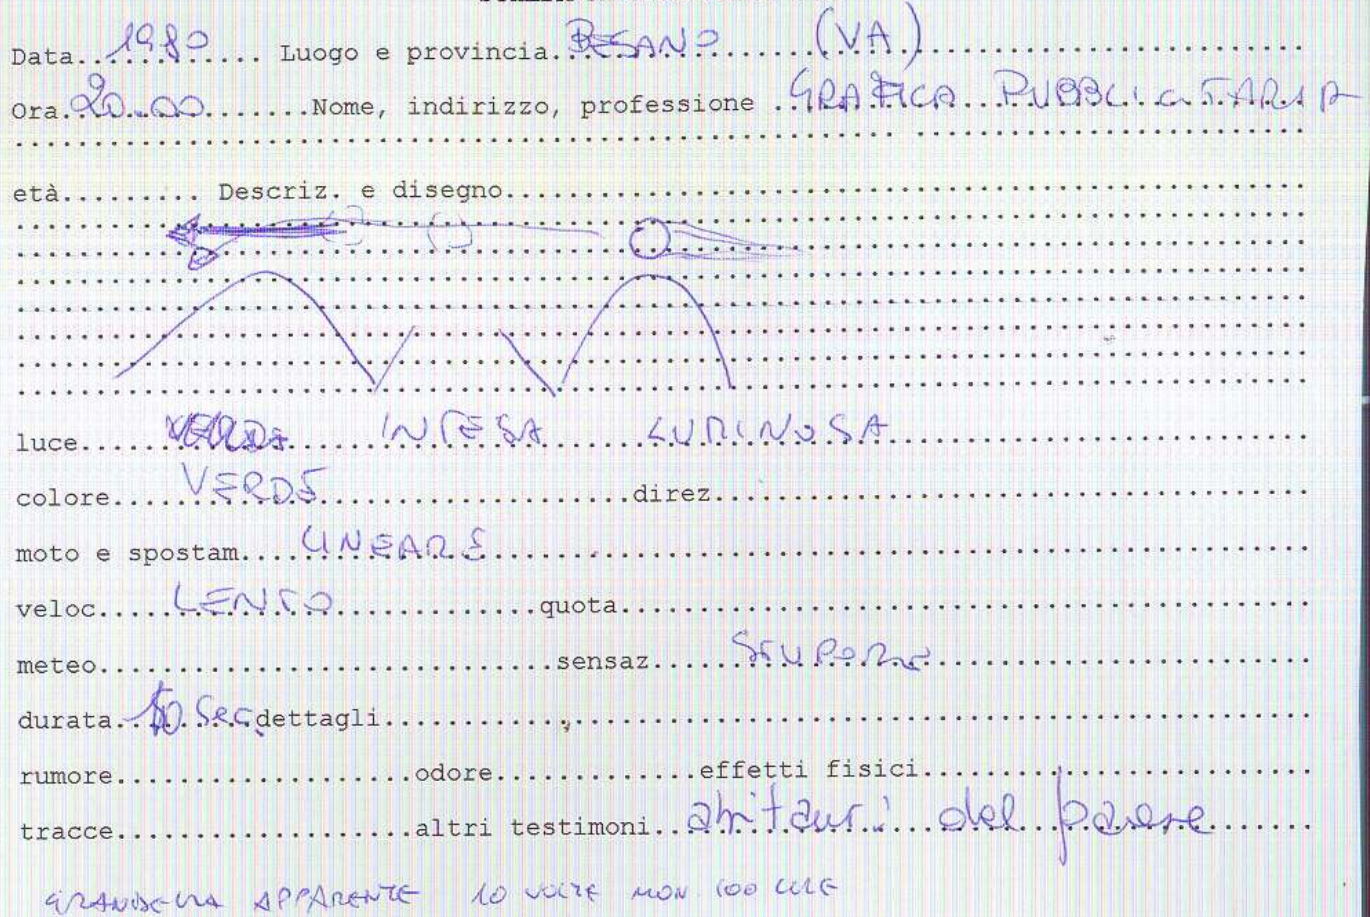 Data..1980..... Luogo e provincia..BESANO.......(VA)..........................
Ora.20.00.......Nome, indirizzo, professione .GRAFICA..PUBBLICITARIA
età......... Descriz. e disegno..........................................
luce......VERDE......INTESA......LUMINOSA.............................
colore.....VERDE......................direz..................................
moto e spostam....LINEARE..................................................
veloc.....LENTO..............quota.......................................
meteo.............................sensaz......STUPORE......................
durata...10.Sec.dettagli.................................................
rumore...................odore.............effetti fisici....................
tracce...................altri testimoni..abitanti...del..paese.......
GRANDEZZA APPARENTE 10 VOLTE